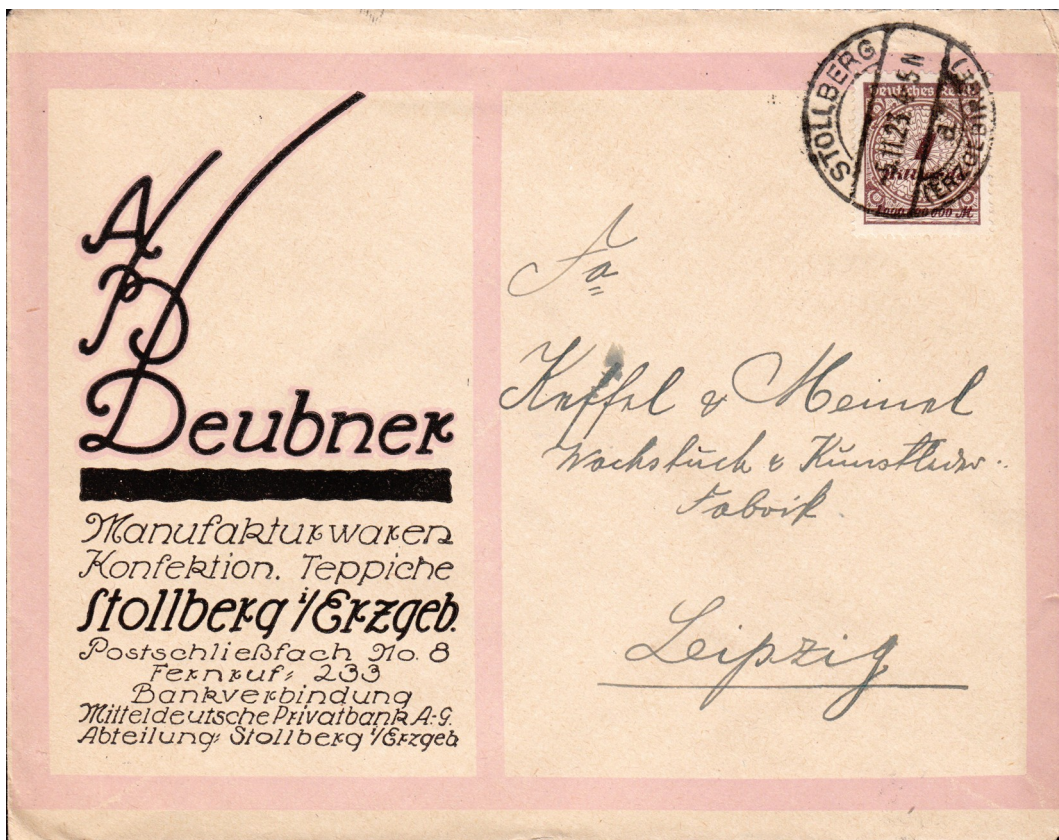 A
P
Deubner
Manufakturwaren
Konfektion. Teppiche
Stollberg i/Erzgeb.
Postschließfach No. 8
Fernruf: 233
Bankverbindung
Mitteldeutsche Privatbank A.-G.
Abteilung: Stollberg i/Erzgeb
STOLLBERG
(ERZGEBIRGE)
a
Deutsches Reich
Fa
& Meinel
Wachstuch & Kunstleder-
Fabrik
Leipzig